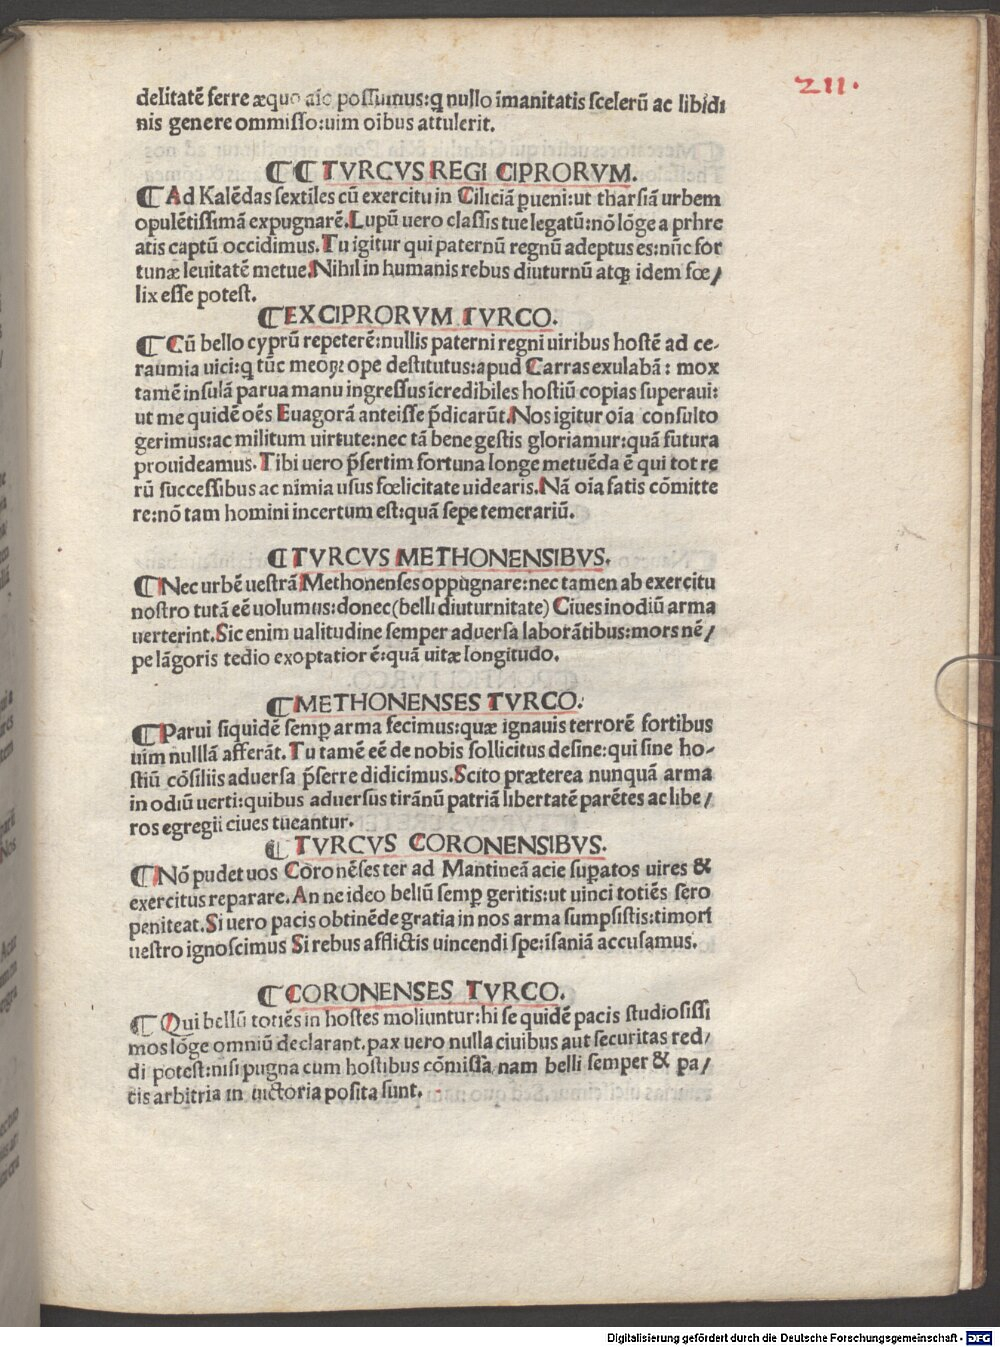 211.
delitatē ferre æquo aīc possumus:ꝙ nullo īmanitatis scelerū ac libidi
nis genere ommisso:uim oībus attulerit.
⸿ ⸿ TVRCVS REGI CIPRORVM.
⸿ Ad Kalēdas sextiles cū exercitu in Ciliciā ꝑueni:ut tharsiā urbem
opulētissimā expugnarē.Lupū uero classis tue legatū:nō lōge a prhre
atis captū occidimus.Tu igitur qui paternū regnū adeptus es:nūc for
tunæ leuitatē metue.Nihil in humanis rebus diuturnū atqꝫ idem fœ/
lix esse potest.
⸿EX CIPRORVM TVRCO.
⸿ Cū bello cyprū repeterē:nullis paterni regni uiribus hostē ad ce-
raumia uici:ꝙ tūc meoꝝ ope destitutus:apud Carras exulabā: mox
tamē insulā parua manu ingressus īcredibiles hostiū copias superaui:
ut me quidē oēs Euagorā anteisse p̄dicarūt.Nos igitur oīa consulto
gerimus:ac militum uirtute:nec tā bene gestis gloriamur:quā futura
prouideamus.Tibi uero p̄sertim fortuna longe metuēda ē qui tot re
rū successibus ac nimia usus fœlicitate uidearis.Nā oīa fatis cōmitte
re:nō tam homini incertum est:quā sepe temerariū.
⸿ TVRCVS METHONENSIBVS.
⸿Nec urbē uestrā Methonenses oppugnare:nec tamen ab exercitu
nostro tutā eē uolumus:donec(belli diuturnitate) Ciues in odiū arma
uerterint.Sic enim ualitudine semper aduersa laborātibus:mors nē/
pe lāgoris tedio exoptatior ē:quā uitæ longitudo.
⸿METHONENSES TVRCO.
⸿Parui siquidē semꝑ arma fecimus:quæ ignauis terrorē fortibus
uim nullā afferāt.Tu tamē eē de nobis sollicitus desine:qui sine ho-
stiū cōsiliis aduersa p̄ferre didicimus.Scito præterea nunquā arma
in odiū uerti:quibus aduersus tirānū patriā libertatē parētes ac libe/
ros egregii ciues tueantur.
⸿ TVRCVS CORONENSIBVS.
⸿Nō pudet uos Coronēses ter ad Mantineā acie suꝑatos uires &
exercitus reparare.An ne ideo bellū semꝑ geritis:ut uinci totiēs sero
peniteat.Si uero pacis obtinēde gratia in nos arma sumpsistis:timori
uestro ignoscimus Si rebus afflictis uincendi spe:īsaniā accusamus.
⸿CORONENSES TVRCO.
⸿Qui bellū totiēs in hostes moliuntur:hi se quidē pacis studiosissi
mos lōge omniū declarant.pax uero nulla ciuibus aut securitas red/
di potest:nisi pugna cum hostibus cōmissa nam belli semper & pa/
cis arbitria in uictoria posita sunt.
Digitalisierung gefördert durch die Deutsche Forschungsgemeinschaft - DFG